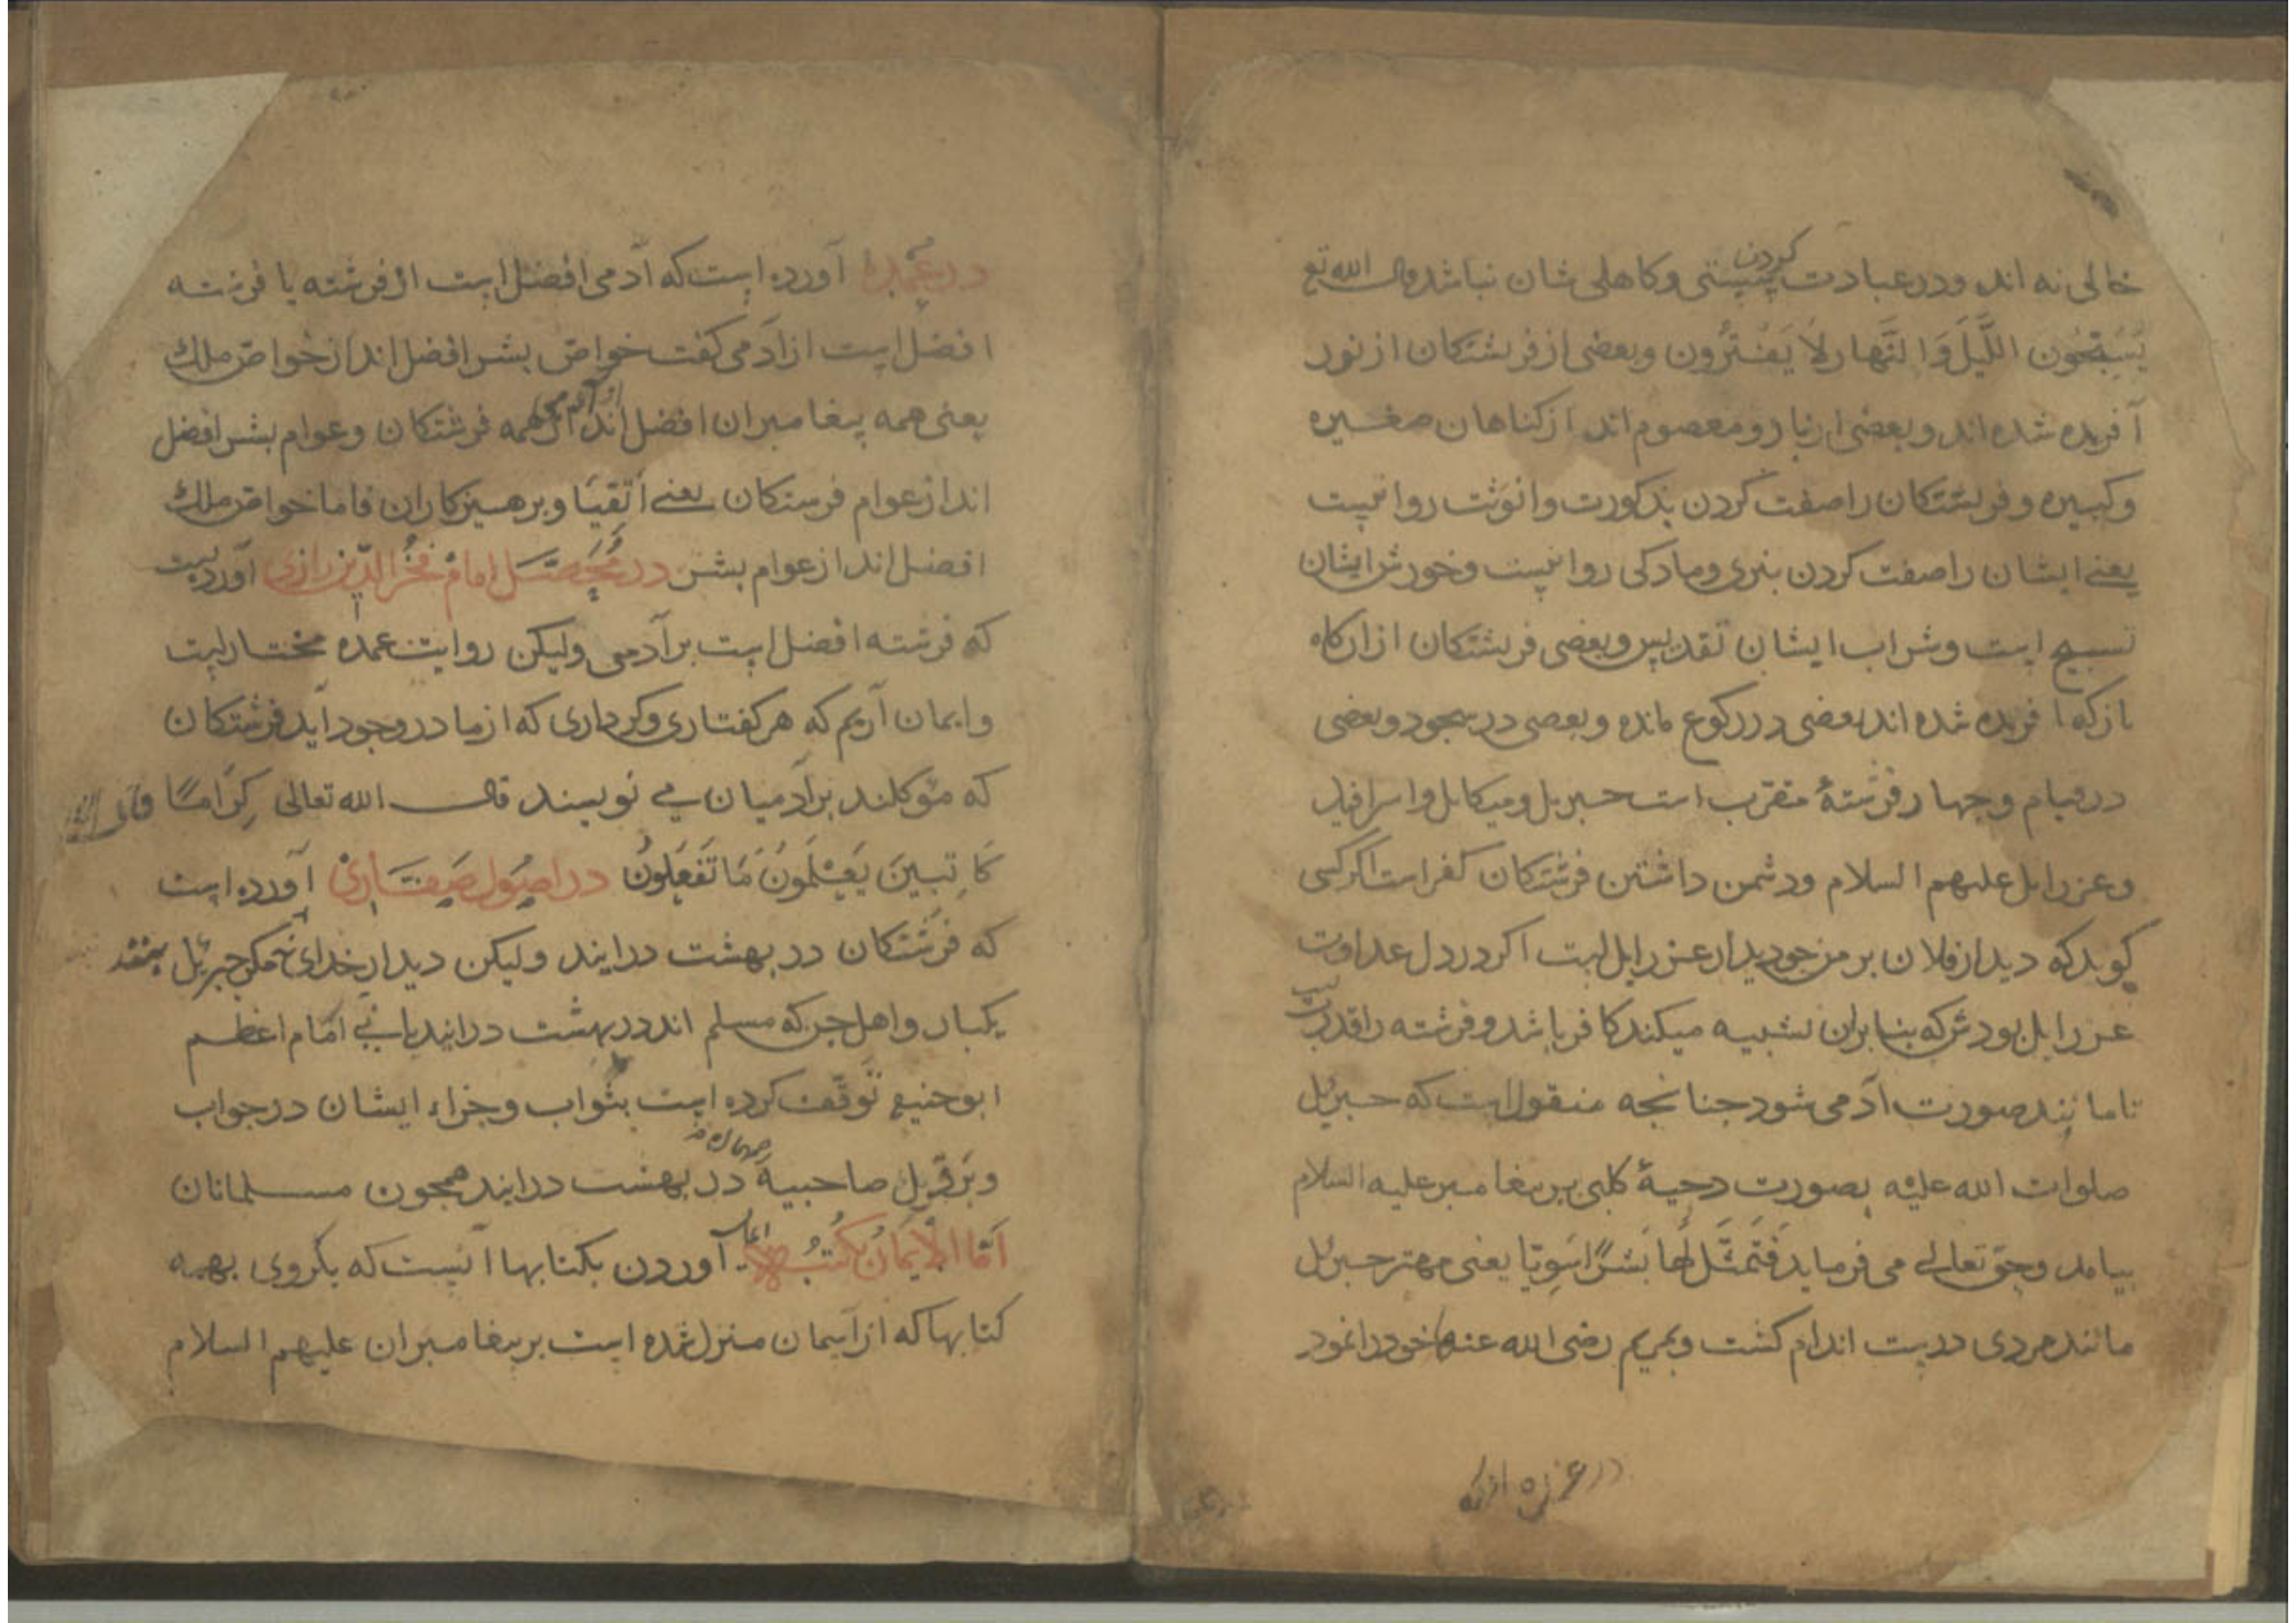 خالی نه اند ودر عبادت کردن سستی وکاهلی شان نباشد قال الله تع
یُسَبِّحُون اللَّیلَ وَالنَّهار لاَ یَفتُرُون وبعضی از فرشتکان از نور
آفریده شده اند وبعضی از نار ومعصوم اند از کناهان صغیره
وکبیره وفرشتکان را صفت کردن بذکورت وانوثت روا نیست
یعنے ایشان را صفت کردن بنری ومادکی روا نیست وخورش ایشان
تسبیح است وشراب ایشان تقدیس وبعضی فرشتکان ازان کاه
باز که آفریده شده اند بعضی در رکوع مانده وبعضی در سجود وبعضی
در قیام وچهار فرشتهٔ مقرّب است جبریل ومیکایل واسرافیل
وعزرایل علیهم السلام ودشمن داشتن فرشتکان کفر است اکر کسی
کوید که دیدار فلان بر من چو دیدار عزرایل است اکر در دل عداوت
عزرایل بودش که بنا بران تشبیه میکند کافر باشد وفرشته را قدرت است
تا مانند صورت آدمی شود چنانچه منقول است که جبریل
صلوات الله علیه بصورت دحیهٔ کلبی بر پیغامبر علیه السلام
بیامد وحق تعالے می فرماید فَتَمَثَّلَ لَهَا بَشَرًا سَوِیّا یعنی مهتر جبریل
مانند مردی درست اندام کشت وبمریم رضی الله عنها خود را نمود
در عمده آورده است که آدمی افضل است از فرشته یا فرشته
افضل است از آدمی کفت خواصّ بشر افضل اند از خواصّ ملك
یعنی همه پیغامبران افضل اند از همه فرشتکان وعوام بشر افضل
اند از عوام فرستکان یعنے اتقیَا وپرهیزکاران فاما خواصّ ملك
افضل اند از عوام بشر در مُحَصَّل امامْ فخرُ الدّین رازی آورده است
که فرشته افضل است بر آدمی ولیکن روایت عمده مختار است
وایمان آریم که هر کفتاری وکرداری که از ما در وجود آید فرشتکان
که مؤکلند بر آدمیان مے نویسند قال الله تعالی کِرَامًا
کَاتِبینَ یَعْلَمُونَ مَا تَفعَلُونَ در اصُول صَفَّارِیْ آورده است
که فرشتکان در بهشت درایند ولیکن دیدار خدای نه مکر جبریل
یکبار واهل جن که مسلم اند در بهشت درایند یا نے امام اعظم
ابو حنیفه توقّف کرده است بثواب وجزاء ایشان در جواب
وبر قول صاحبیه در بهشت درایند همچون مسلمانان
اَمَّا الاِیمَانُ بکتُبُه ایمان آوردن بکتابها آنست که بکروی بهمه
کتابها که از آسمان منزل شده است بر پیغامبران علیهم السلام